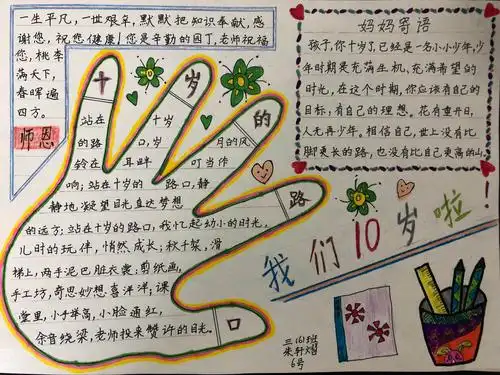 一生平凡,一世艰辛,默默把知识奉献,感
谢您,祝您健康!您是辛勤的园丁,老师祝福
您,桃李
满天下,
春晖遍
四方。
师恩
妈妈寄语
孩子,你十岁了,已经是一名小小少年,少
年时期是充满生机,充满希望的
时光,在这个时期,你应该有自己的
目标,有自己的理想。花有重开日,
人无再少年。相信自己,世上没有比
脚更长的路,也没有比自己更高的山
十
岁
的
路
口
站在 十岁
的路 口,岁 月的风
铃在 耳畔 叮当作
响;站在十岁的 路口,静
静地,凝望目光直达梦想
的远方;站在十岁的路口,我忆起幼小的时光,
儿时的玩伴,悄然成长;秋千架,滑
梯上,两手泥巴脏衣裳;剪纸画,
手工坊,奇思妙想喜洋洋;课
堂里,小手举高,小脸通红,
余音绕梁,老师投来赞许的目光。
我们10岁啦!
三(6)班
朱轩
6号